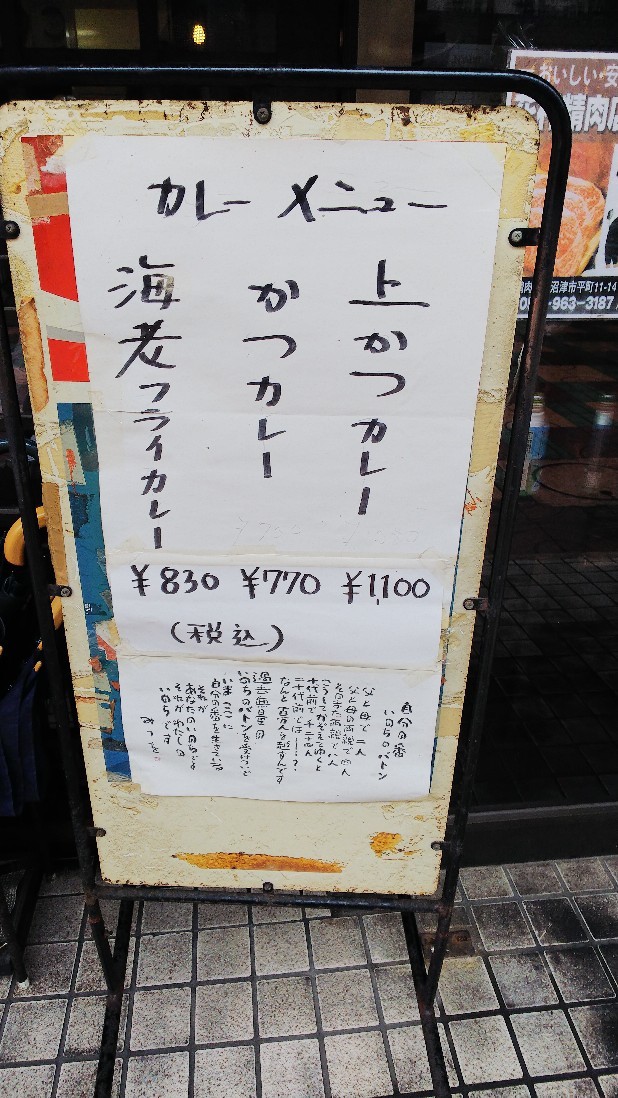 カレーメニュー
上かつカレー
かつカレー
海老フライカレー
¥830 ¥770 ¥1,100
(税込)
自分の番
いのちのバトン
父と母で二人
父と母の両親で四人
そのまた両親で八人
こうしてかぞえてゆくと
十代前で千二十四人
二十代前では―――?
なんと百万人を越すんです
過去無量の
いのちのバトンを受けついで
いまここに
自分の番を生きている
それが
あなたのいのちです
それがわたしの
いのちです
みつを
おいしい・安
精肉店
沼津市平町11-14
963-3187